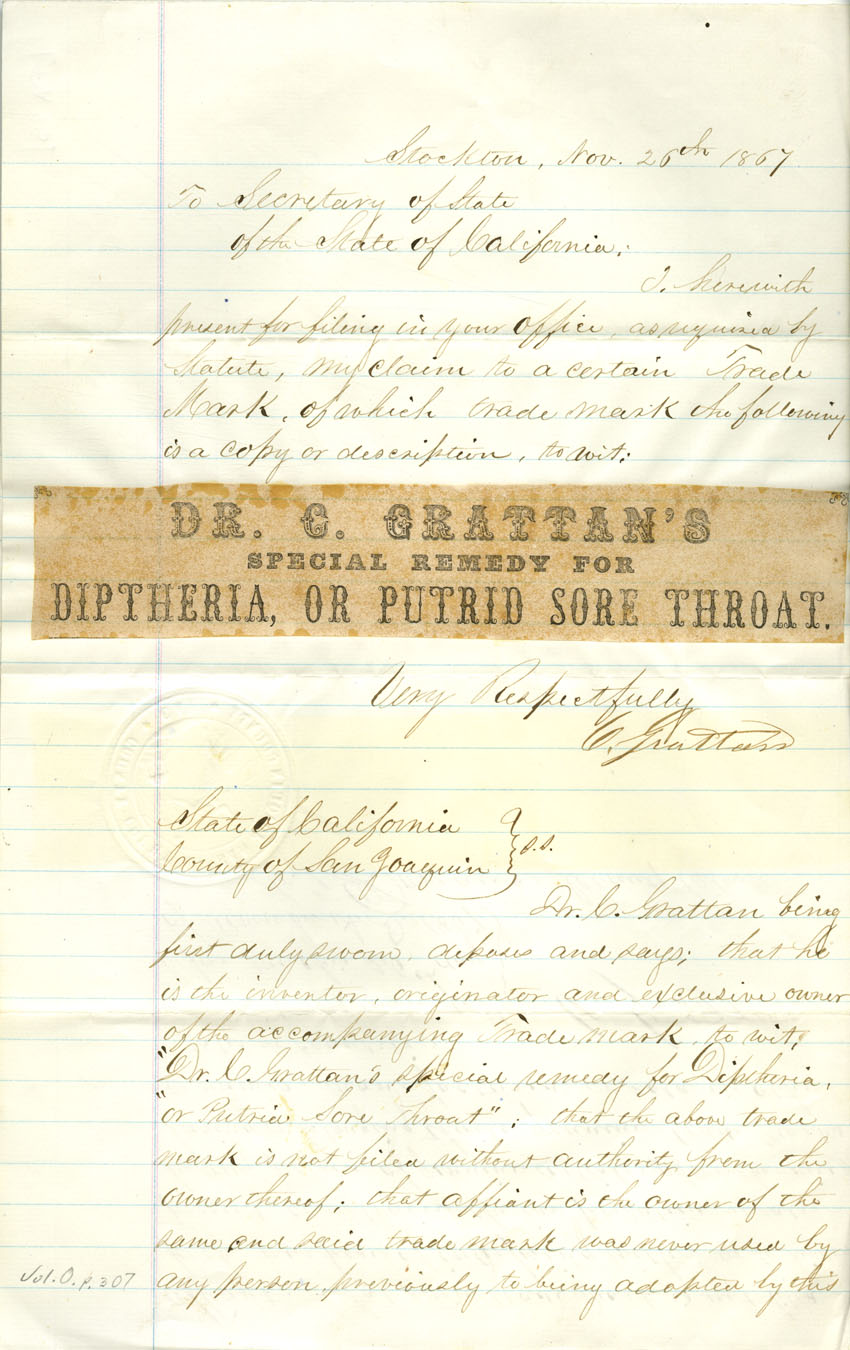 Stockton, Nov. 26th 1867
To Secretary of State
of the State of California;
I. herewith
present for filing in your office, as required by
Statute, my claim to a certain Trade
Mark, of which trade mark the following
is a copy or description, to wit;
DR. C. GRATTAN'S
SPECIAL REMEDY FOR
DIPTHERIA, OR PUTRID SORE THROAT.
Very Respectfully
C. Grattan
State of California
County of San Joaquin } s.s.
Dr. C. Grattan being
first duly sworn, deposes and says; that he
is the inventor, originator and exclusive owner
of the accompanying Trade mark, to wit;
"Dr. C. Grattan's special remedy for Diptheria,
"or Putrid Sore Throat"; that the above trade
mark is not filed without authority from the
owner thereof; that affiant is the owner of the
same and said trade mark was never used by
any person previously to being adopted by this
Vol. O. p. 307